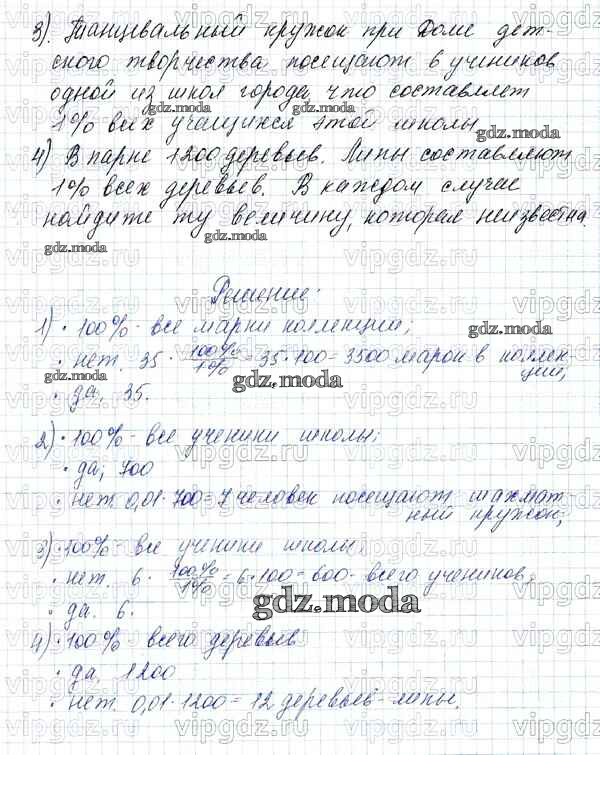 3). Танцевальный кружок при Доме дет-
ского творчества посещают 6 учеников
одной из школ города, что составляет
1% всех учащихся этой школы
4) В парке 1200 деревьев. Липы составляют
1% всех деревьев. В каждом случае
найдите ту величину, которая неизвестна.
Решение:
1) · 100% - все марки коллекции;
· нет. 35 · 100%/1% = 35 · 100 = 3500 марок в коллек-
ции;
· да, 35.
2) · 100% - все ученики школы;
· да; 700
· нет. 0,01 · 700 = 7 человек посещают шахмат-
ный кружок;
3) · 100% - все ученики школы;
· нет. 6 · 100%/1% = 6 · 100 = 600 - всего учеников;
· да. 6.
4) · 100% - всего деревьев
· да. 1200
· нет. 0,01 · 1200 = 12 деревьев - липы.
gdz.moda
vipgdz.ru